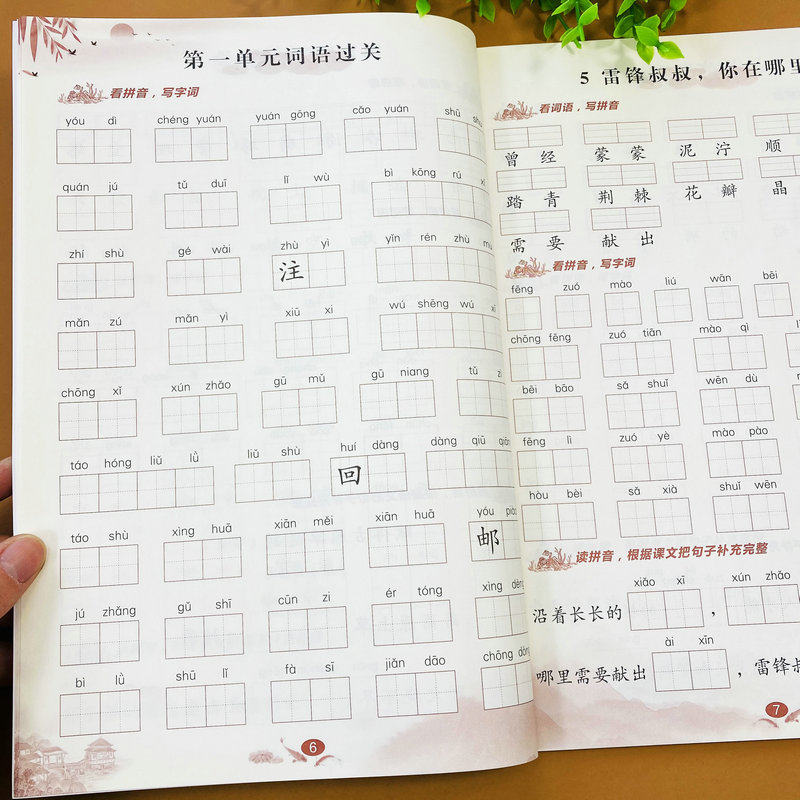 第一单元词语过关
看拼音，写字词
yóu dì chéng yuán yuán gōng cāo yuán shū
quán jú tǔ duī lǐ wù bì kōng rú
zhí shù gé wài zhù yì yīn rén zhù
注
mǎn zú mǎn yì xiū xi wú shēng wú xī
chōng xǐ xún zhǎo gū mǔ gū niang tǔ
táo hóng liǔ lǜ liǔ shù huí dàng dàng qiū qiān
回
táo shù xìng huā xiān měi xiān huā yóu
邮
jú zhǎng gǔ shī cūn zi ér tóng xìng
bì lǜ shū lǐ fà sī jiǎn dāo chōng
6
5 雷锋叔叔，你在哪里
看词语，写拼音
曾经 蒙蒙 泥泞 顺
踏青 荆棘 花瓣 晶
需要 献出
看拼音，写字词
fēng zuó mào liú wān bēi
chōng fēng zuó tiān mào qì
bēi bāo sǎ shuǐ wēn dù
fēng lì zuó yè mào pào
hòu bèi sǎ xià shuǐ wēn
读拼音，根据课文把句子补充完整
xiǎo xī xún zhǎo
沿着长长的 ，
ài xīn
哪里需要献出 ，雷锋
7